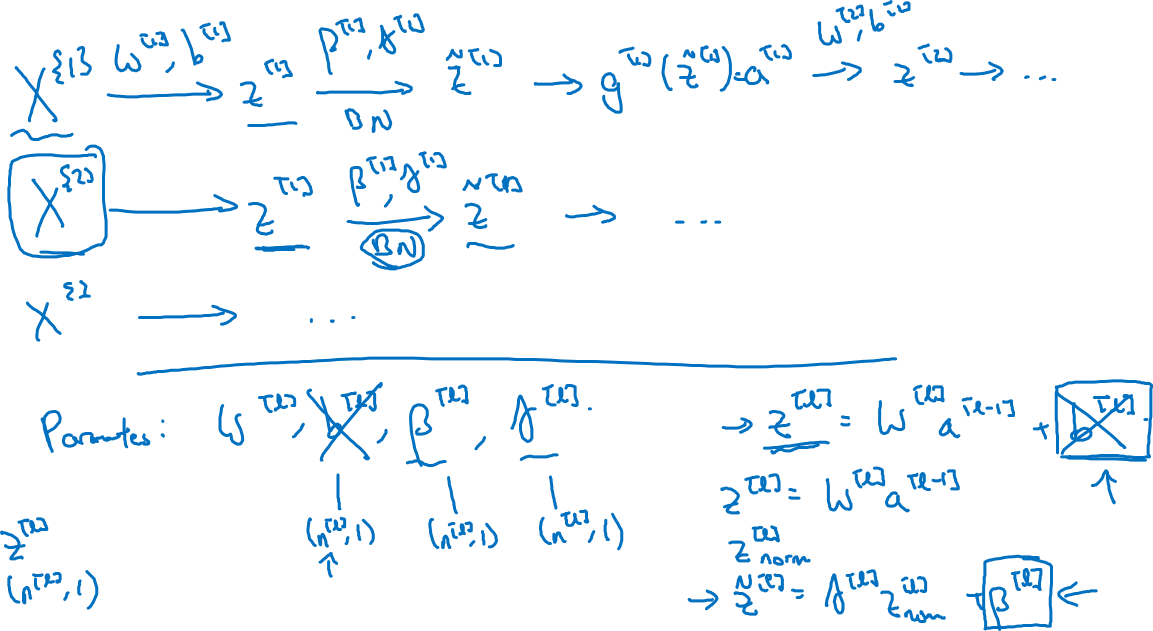 X^{1} W^[1], b^[1] → z^[1] β^[1], γ^[1] BN → z̃^[1] → g^[1](z̃^[1]) = a^[1] W^[2], b^[2] → z^[2] → ...
X^{2} → z^[1] β^[1], γ^[1] BN → z̃^[1] → ...
X^{} → ...
Parameters: W^[l], b^[l], β^[l], γ^[l].
(n^[l], 1) (n^[l], 1) (n^[l], 1)
z^[l]
(n^[l], 1)
→ z^[l] = W^[l] a^[l-1] + b^[l]
z^[l] = W^[l] a^[l-1]
z^[l] norm
→ z̃^[l] = γ^[l] z^[l] norm + β^[l] ←